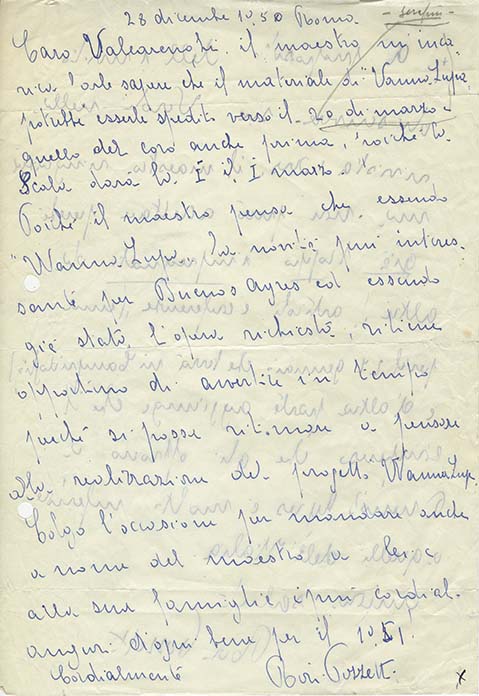 28 dicembre 1950 Roma.
Caro Valcarenghi. il maestro mi inca
rica farle sapere che il materiale di "Vanna Lupa
potrebbe essere spedito verso il 20 di marzo -
quello del coro anche prima, poichè la
Scala darà la I il I marzo.
Poichè il maestro pensa che essendo
"Vanna Lupa" la novità più interes.
sante per Buenos Ayres ed essendo
già stata l'opera richiesta, ritiene
opportuno di avertire in tempo
perchè si possa ritornare a pensare
alla realizzazione del progetto Vanna Lupa.
Colgo l'occasione per mandare anche
a nome del maestro a lei e
alla sua famiglia i più cordial.
auguri d'ogni bene per il 1951.
Cordialmente